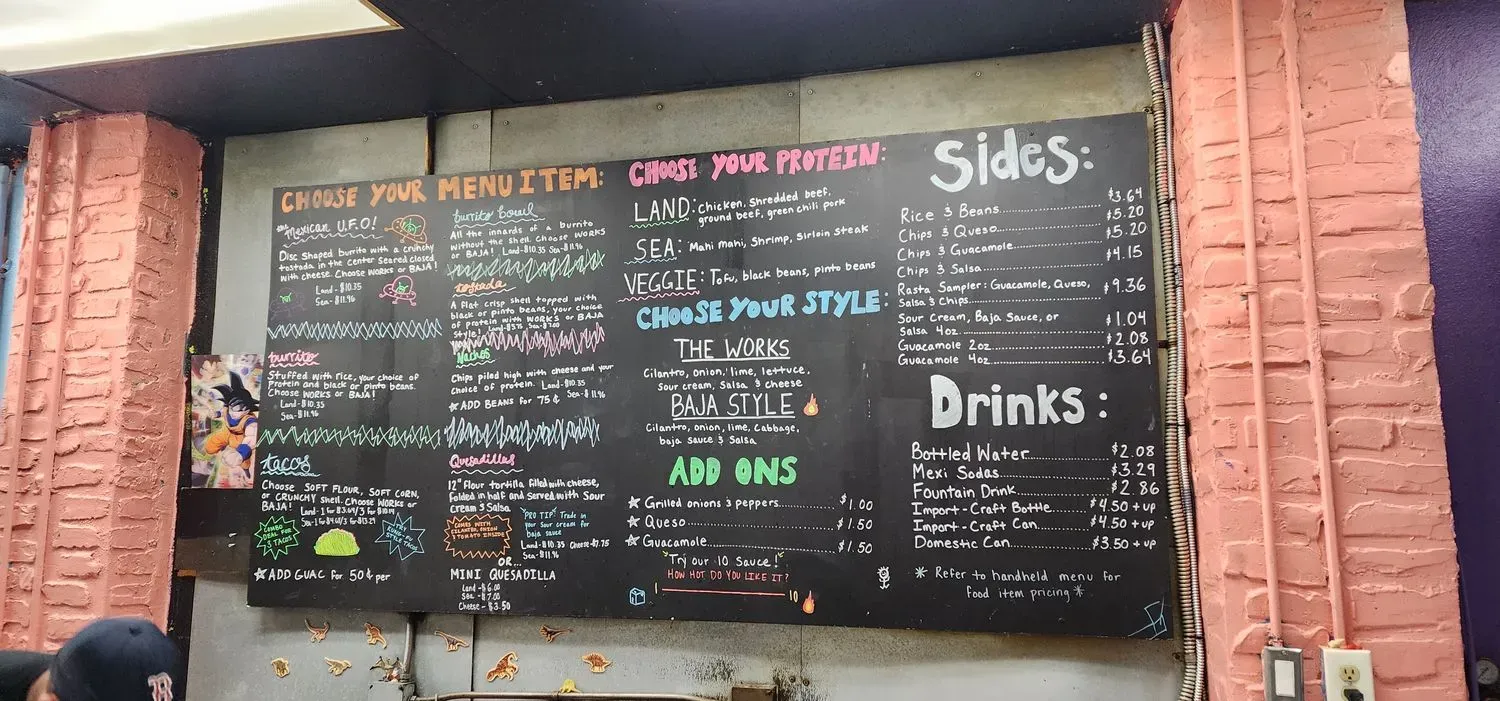 CHOOSE YOUR MENU ITEM:
the Mexican U.F.O!
Disc Shaped burrito with a crunchy
tostada in the center Seared closed
with cheese. Choose WORKS or BAJA!
Land - $10.35
Sea - $11.96
burrito
Stuffed with rice, your choice of
Protein and black or pinto beans.
Choose WORKS or BAJA!
Land - $10.35
Sea - $11.96
tacos
Choose SOFT FLOUR, SOFT CORN,
or CRUNCHY shell. Choose WORKS or
BAJA!
COMBO
DEAL FOR
3 TACOS
KUNG-FU
STYLE TACOS
☆ADD GUAC for 50¢ per
burrito bowl
All the innards of a burrito
without the shell. Choose WORKS
or BAJA! Land-$10.35 Sea-$11.96
tostada
A flat crisp shell topped with
black or pinto beans, your choice
of protein with WORKS or BAJA
Style!
Nachos
Chips piled high with cheese and your
choice of protein. Land-$10.35
Sea-$11.96
☆ADD BEANS for 75¢
Quesadillas
12" Flour tortilla filled with cheese,
Folded in half and served with Sour
cream & Salsa
COMES WITH
CILANTRO, ONION
& TOMATO INSIDE
PRO TIP: Trade in
your Sour cream for
baja sauce
Land-$10.35 Cheese-$7.75
Sea-$11.96
OR...
MINI QUESADILLA
Land - $6.00
Sea - $7.00
Cheese - $3.50
CHOOSE YOUR PROTEIN:
LAND: chicken, Shredded beef,
ground beef, green chili pork
SEA: Mahi mahi, Shrimp, Sirloin Steak
VEGGIE: Tofu, black beans, pinto beans
CHOOSE YOUR STYLE:
THE WORKS
Cilantro, onion, lime, lettuce,
Sour cream, Salsa & cheese
BAJA STYLE
Cilantro, onion, lime, Cabbage,
baja sauce & Salsa
ADD ONS
☆ Grilled onions & peppers........ $1.00
☆ Queso........ $1.50
☆ Guacamole........ $1.50
Try our 10 Sauce!
HOW HOT DO YOU LIKE IT?
1 10
Sides:
Rice & Beans........ $3.64
Chips & Queso........ $5.20
Chips & Guacamole........ $5.20
Chips & Salsa........ $4.15
Rasta Sampler: Guacamole, Queso,
Salsa & Chips........ $9.36
Sour Cream, Baja Sauce, or
Salsa 4oz........ $1.04
Guacamole 2oz........ $2.08
Guacamole 4oz........ $3.64
Drinks:
Bottled Water........ $2.08
Mexi Sodas........ $3.29
Fountain Drink........ $2.86
Import-Craft Bottle........ $4.50 + up
Import-Craft Can........ $4.50 + up
Domestic Can........ $3.50 + up
* Refer to handheld menu for
food item pricing *